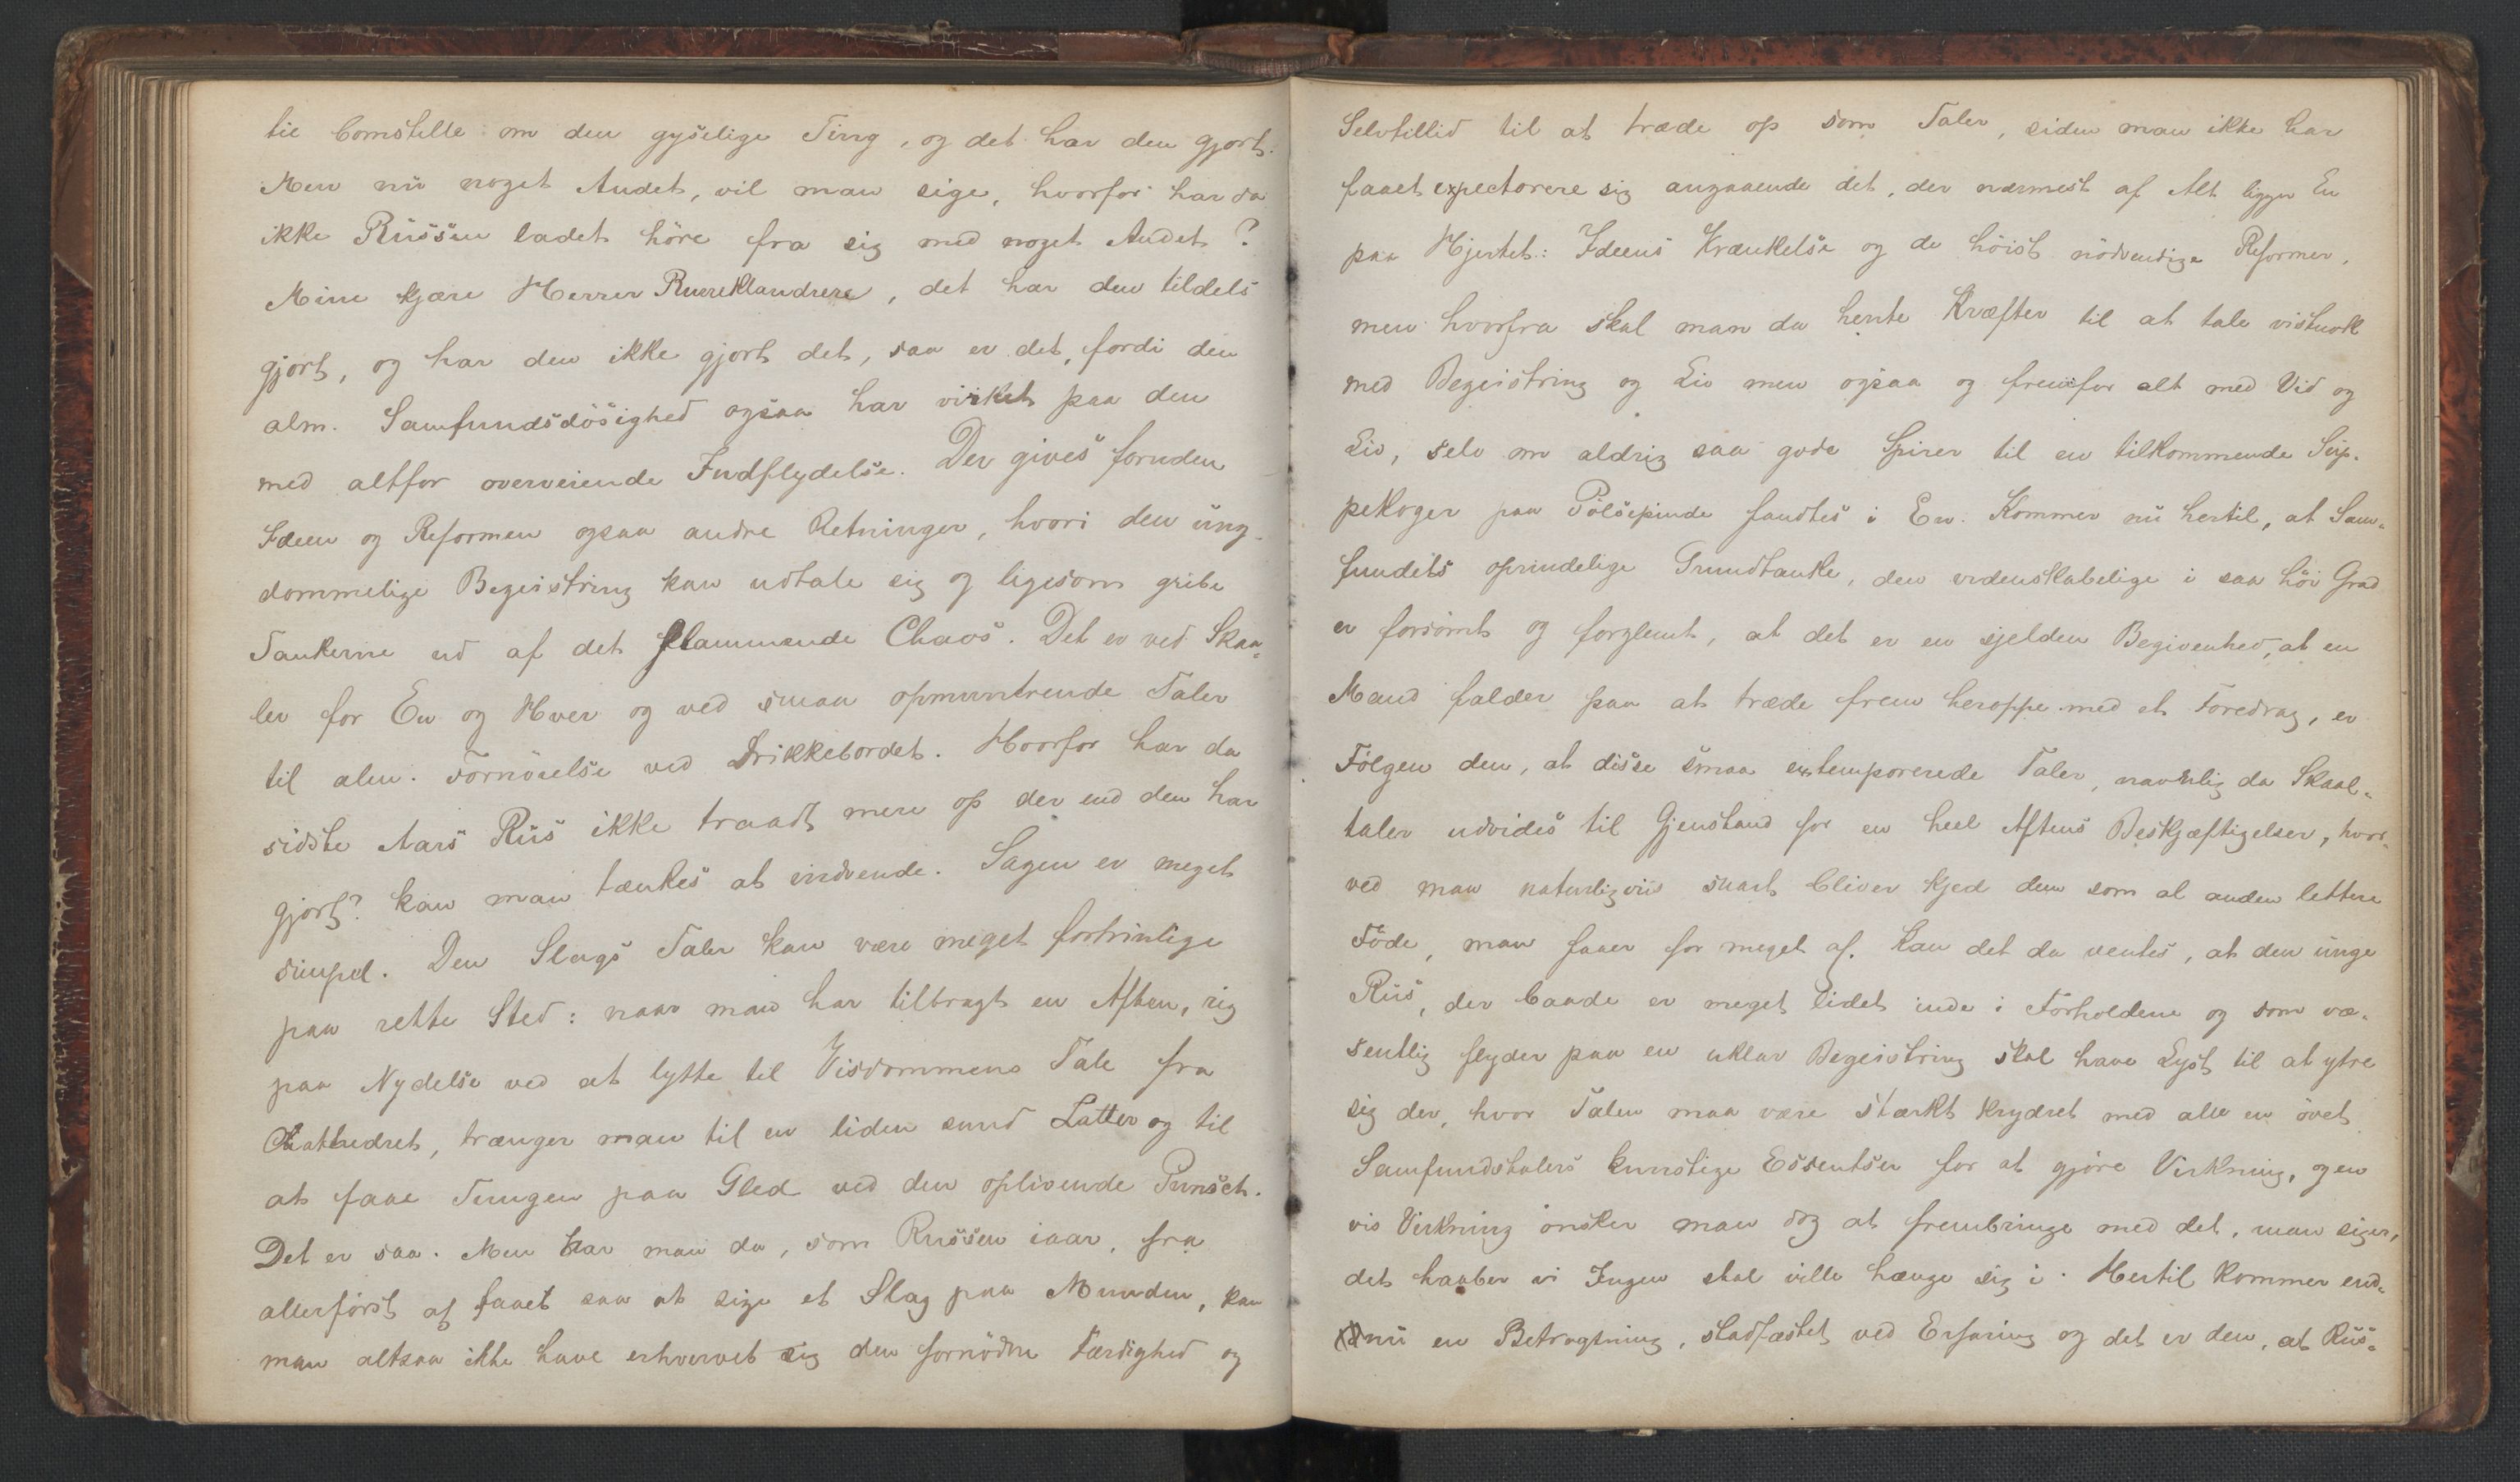 tie bomstille om den gyselige Ting, og det har den gjort.
Men nu noget Andet, vil man sige, hvorfor har da
ikke Russen ladet höre fra sig med noget Andet?
Mine kjære Herrer Russeklandrere, det har den tildels
gjort, og har den ikke gjort det, saa er det, fordi den
alm. Samfundsdösighed ogsaa har virket paa den
med altfor overveiende Indflydelse. Der gives foruden
Ideen og Reformen ogsaa andre Retninger, hvori den ung-
dommelige Begeistring kan udtale sig og ligesom gribe
Tankerne ud af det flammende Chaos. Det er ved Skaa-
ler for En og Hver og ved smaa opmuntrende Taler
til alm. Fornöielse ved Drikkebordet. Hvorfor har da
sidste Aars Rus ikke traadt mere op der end den har
gjort? kan man tænkes at indvende. Sagen er meget
simpel. Den Slags Taler kan være meget fortrinlige
paa rette Sted: naar man har tilbragt en Aften, rig
paa Nydelse ved at lytte til Visdommens Tale fra
Cathedret, trænger man til en liden sund Latter og til
at faae Tungen paa Gled ved den oplivende Punsch.
Det er saa. Men har man da, som Russen iaar, fra
allerförst af faaet saa at sige et Slag paa Munden, kan
man altsaa ikke have erhvervet sig den fornödne Færdighed og
Selvtillid til at træde op som Taler, siden man ikke har
faaet expectorere sig angaaende det, der nærmest af Alt ligger En
paa Hjertet: Ideens Krænkelse og de höist nödvendige Reformer,
men hvorfra skal man da hente Kræfter til at tale vistnok
med Begeistring og Liv men ogsaa og fremfor alt med Vid og
Liv, selv om aldrig saa gode Spirer til en tilkommende Sup-
pekoger paa Pölsepinde fandtes i En. Kommer nu hertil, at Sam-
fundets oprindelige Grundtanke, den videnskabelige i saa höi Grad
er forsömt og forglemt, at det er en sjelden Begivenhed, at en
Mand falder paa at træde frem heroppe med et Foredrag, er
Fölgen den, at disse smaa extemporerede Taler, navnlig da Skaal-
taler udvides til Gjenstand for en heel Aftens Beskjæftigelser, hvor-
ved man naturligviis snart bliver kjed dem som al anden lettere
Föde, man faaer for meget af. Kan det da ventes, at den unge
Rus, der baade er meget lidet inde i Forholdene og som væ-
sentlig flyder paa en uklar Begeistring skal have Lyst til at ytre
sig der, hvor Talen maa være stærkt krydret med alle en övet
Samfundstalers kunstige Essentser for at gjöre Virkning, og en
vis Virkning önsker man dog at frembringe med det, man siger,
det haaber vi Ingen skal ville hænge sig i. Hertil kommer end-
nu en Betragtning, stadfæstet ved Erfaring og det er den, at Rus-